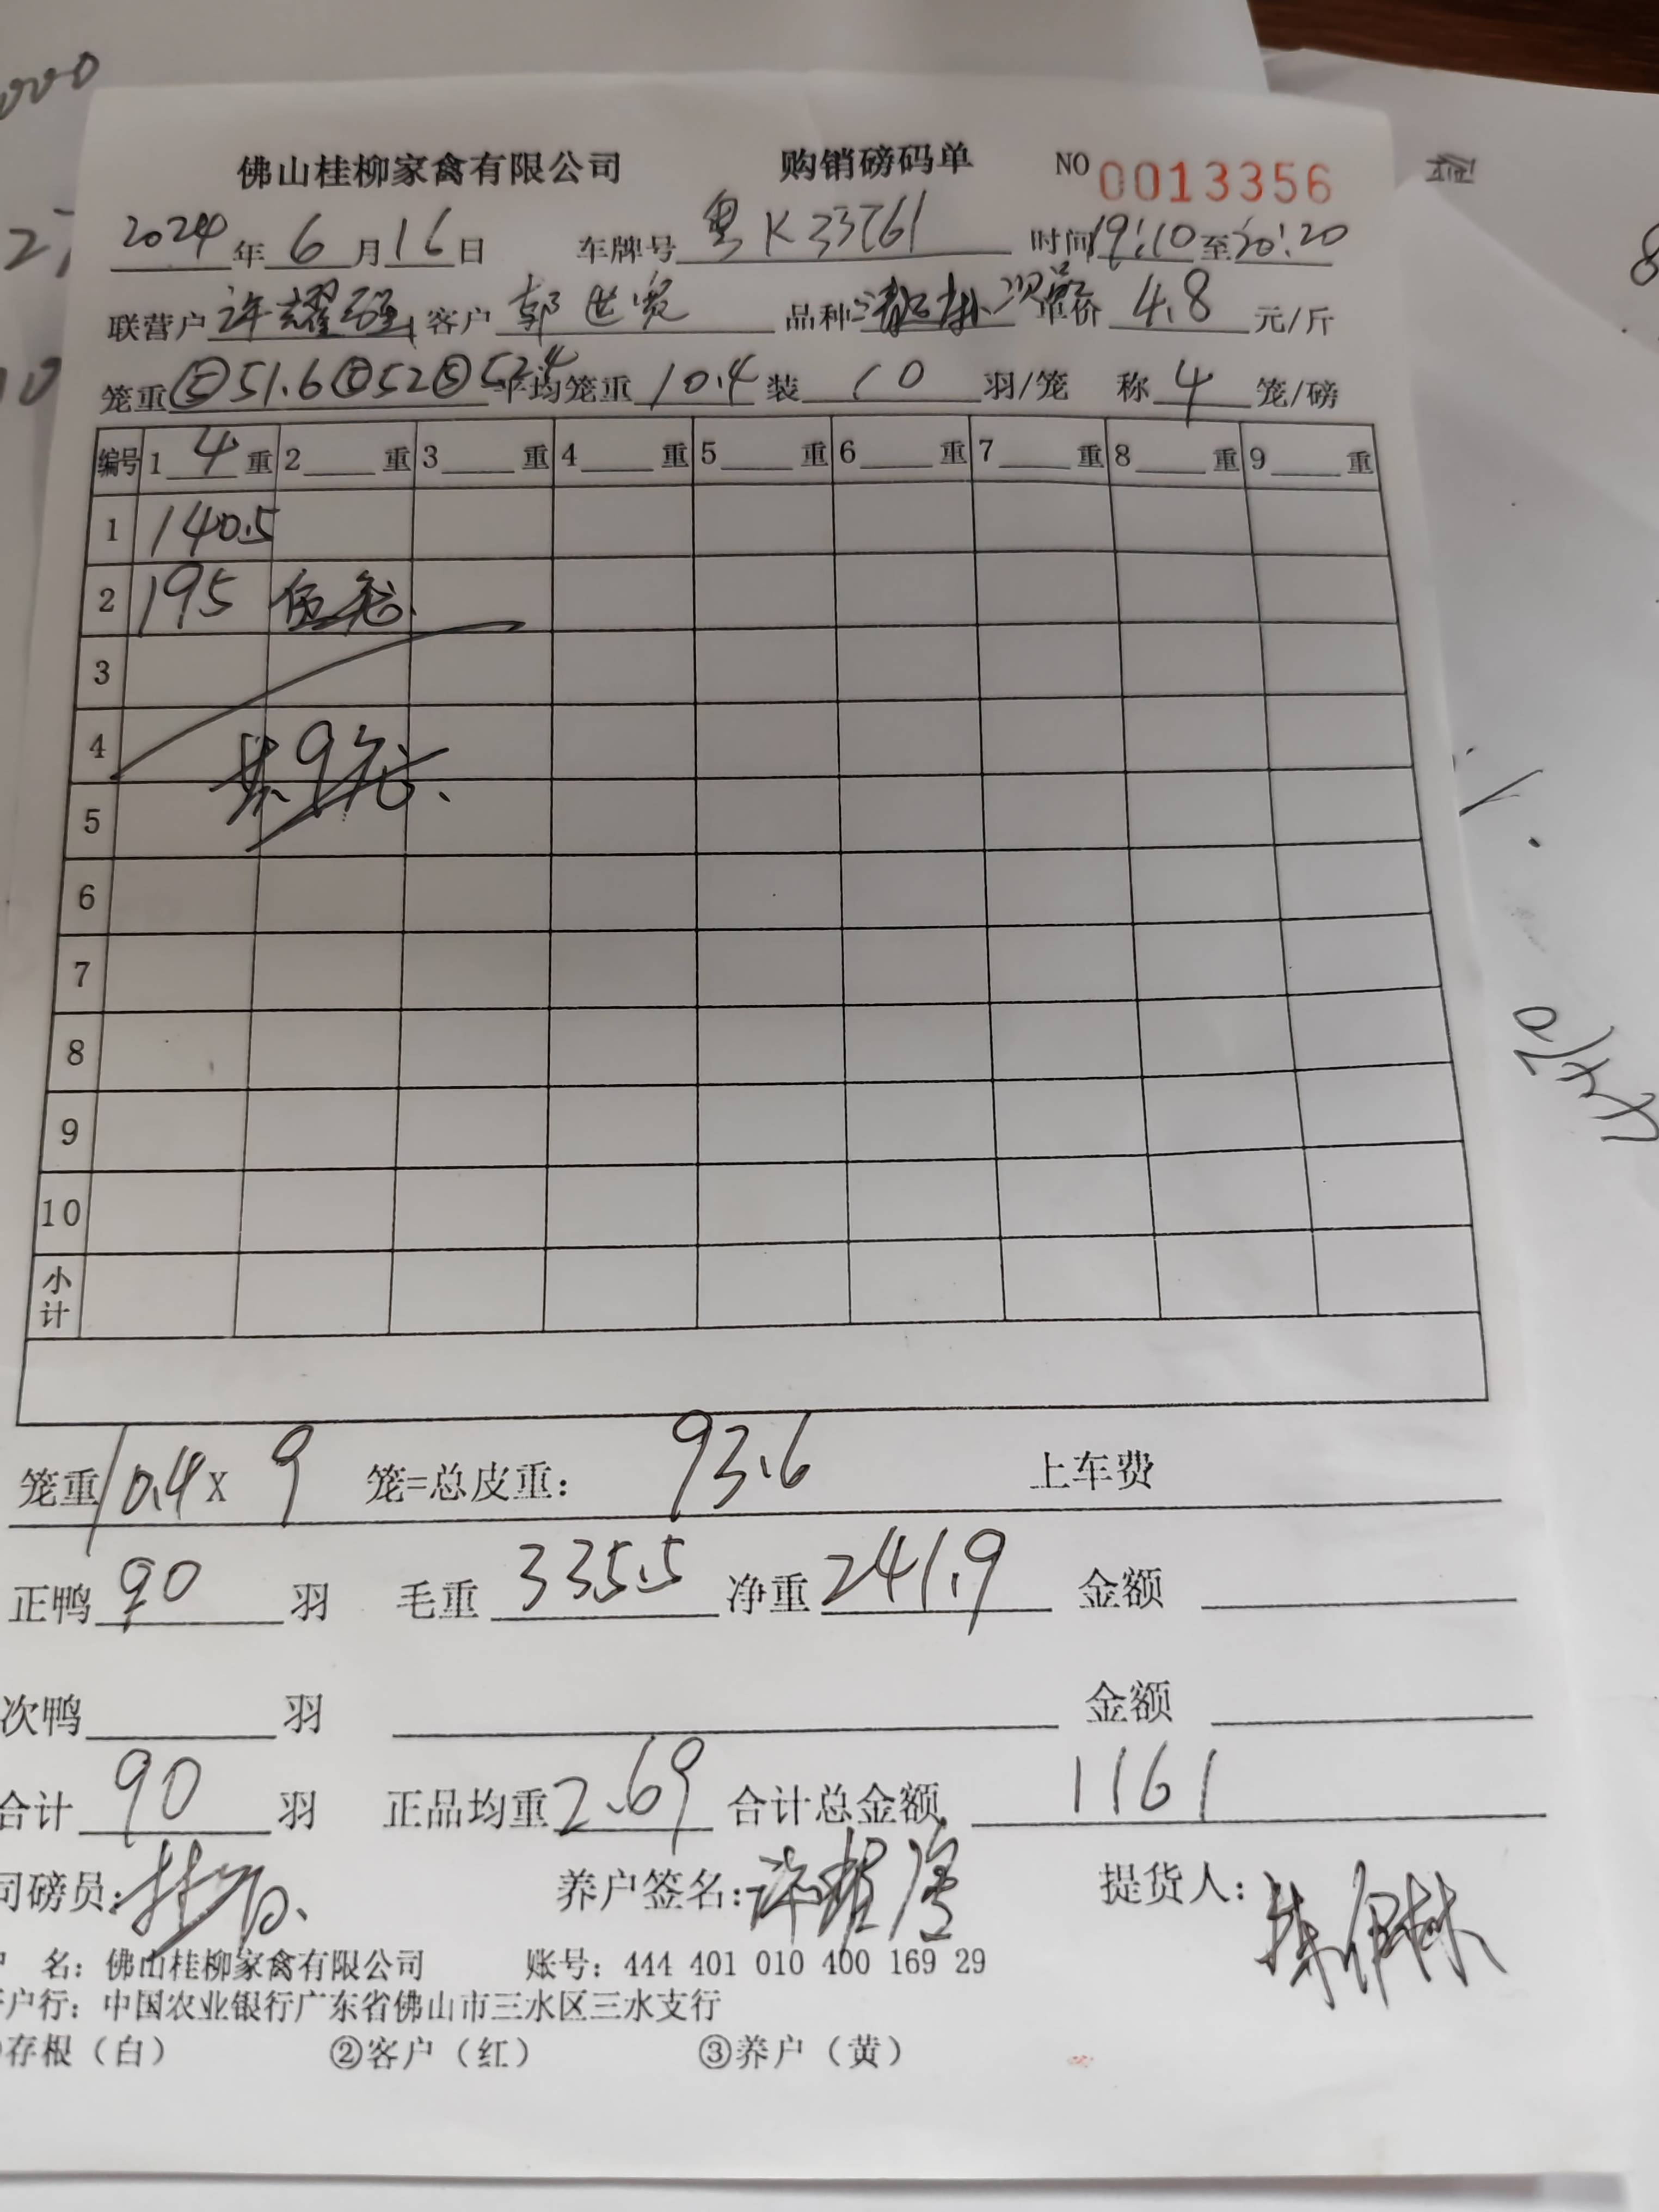 佛山桂柳家禽有限公司 购销磅码单 NO 0013356
2024年6月16日 车牌号粤K33761 时间19:10至20:20
联营户许耀强 客户郭世宽 品种 次品 单价4.8元/斤
笼重⑤51.6⑤52⑤52.4 平均笼重10.4装10羽/笼 称4笼/磅
编号 1 4 重 2 重 3 重 4 重 5 重 6 重 7 重 8 重 9 重
1 140.5
2 195 伍笼
3
4
共9笼
5
6
7
8
9
10
小计
笼重10.4X 9 笼=总皮重: 93.6 上车费
正鸭90羽 毛重335.5 净重241.9 金额
次鸭 羽 金额
合计90羽 正品均重2.69 合计总金额 1161
司磅员: 养户签名: 提货人:
名: 佛山桂柳家禽有限公司 账号: 444 401 010 400 169 29
户行: 中国农业银行广东省佛山市三水区三水支行
存根（白） ②客户（红） ③养户（黄）